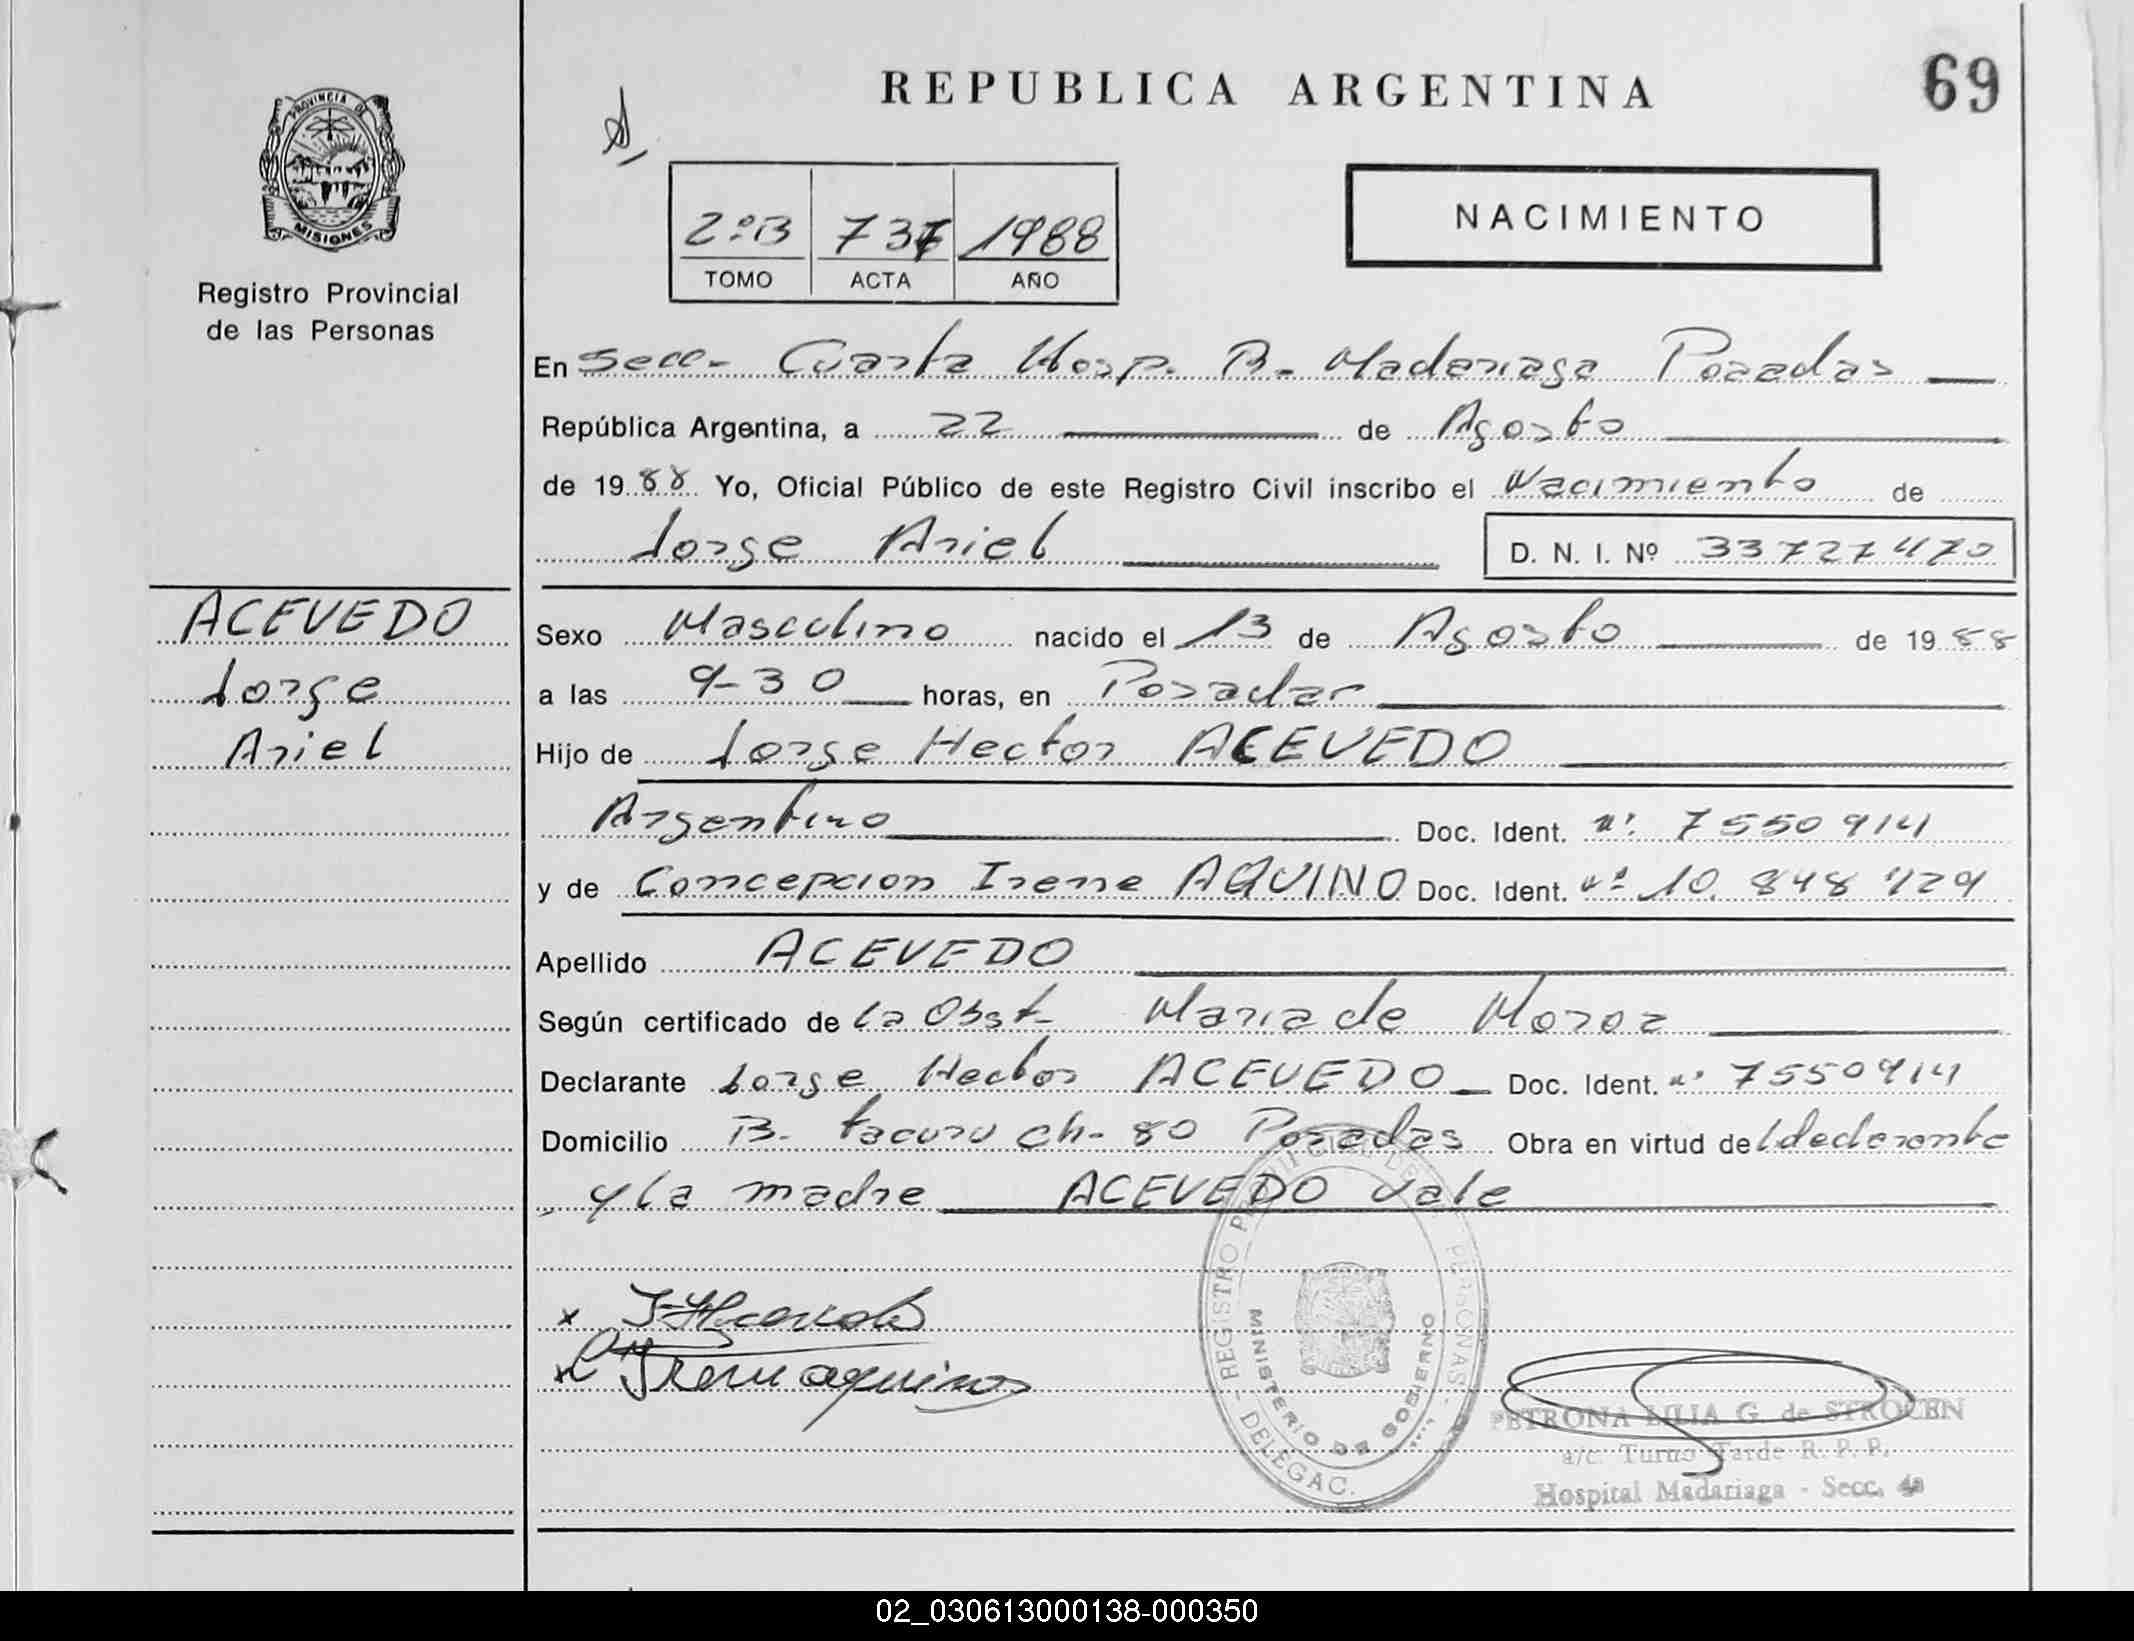 REPUBLICA ARGENTINA
69
PROVINCIA DE
MISIONES
Registro Provincial
de las Personas
2ºB 737 1988
TOMO ACTA AÑO
NACIMIENTO
En Secc- Cuarta Hosp. R. Madariaga Posadas
República Argentina, a 22 de Agosto
de 1988 Yo, Oficial Público de este Registro Civil inscribo el Nacimiento de
Jorge Ariel
D. N. I. Nº 33727470
ACEVEDO
Jorge
Ariel
Sexo Masculino nacido el 13 de Agosto de 1988
a las 9-30 horas, en Posadas
Hijo de Jorge Hector ACEVEDO
Argentino Doc. Ident. nº 7550914
y de Concepcion Irene AQUINO Doc. Ident. nº 10.848729
Apellido ACEVEDO
Según certificado de la Obst- Maria de Moroz
Declarante Jorge Hector ACEVEDO Doc. Ident. nº 7550914
Domicilio B. tacuru ch- 80 Posadas Obra en virtud del declarante
y la madre ACEVEDO vale
x J-HAcevedo
x Irene aquino
REGISTRO PROVINCIAL DE PERSONAS - DELEGAC.
MINISTERIO DE GOBIERNO
PETRONA LILIA G. de STROCEN
a/c. Turno Tarde R. P. P.
Hospital Madariaga - Secc. 4a
02_030613000138-000350